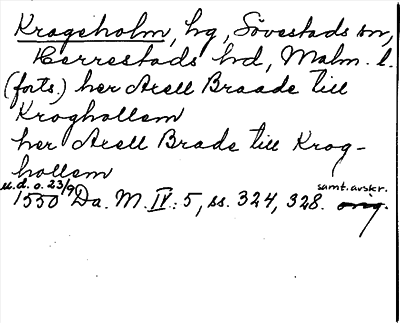 Krageholm, hg, Sövestads sn,
Herrestads hd, Malm. l.
(forts.) her Axell Braade till
Kroghollem
her Axell Brade till Krog-
hollem
u.d. o. 23/9 samt. avskr.
1550 Da. M. IV: 5, ss. 324, 328. orig.